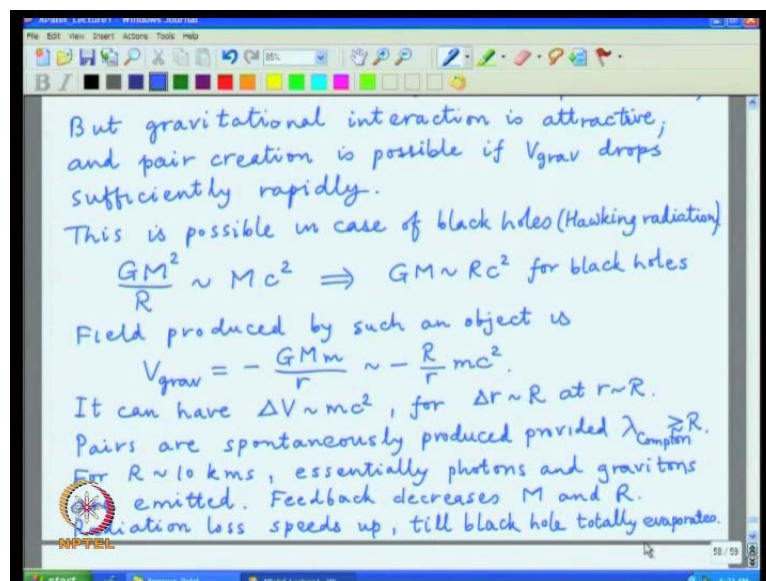 XPatel_Lecture1 - Windows Journal
File Edit View Insert Actions Tools Help
85%
B I
But gravitational interaction is attractive,
and pair creation is possible if V_grav drops
sufficiently rapidly.
This is possible in case of black holes (Hawking radiation)
GM²/R ~ Mc² ⇒ GM ~ Rc² for black holes
Field produced by such an object is
V_grav = - GMm/r ~ - R/r mc².
It can have ΔV ~ mc², for Δr ~ R at r ~ R.
Pairs are spontaneously produced provided λ_Compton ≳ R.
For R ~ 10 kms, essentially photons and gravitons
emitted. Feedback decreases M and R.
Radiation loss speeds up, till black hole totally evaporates.
NPTEL
58 / 59
start